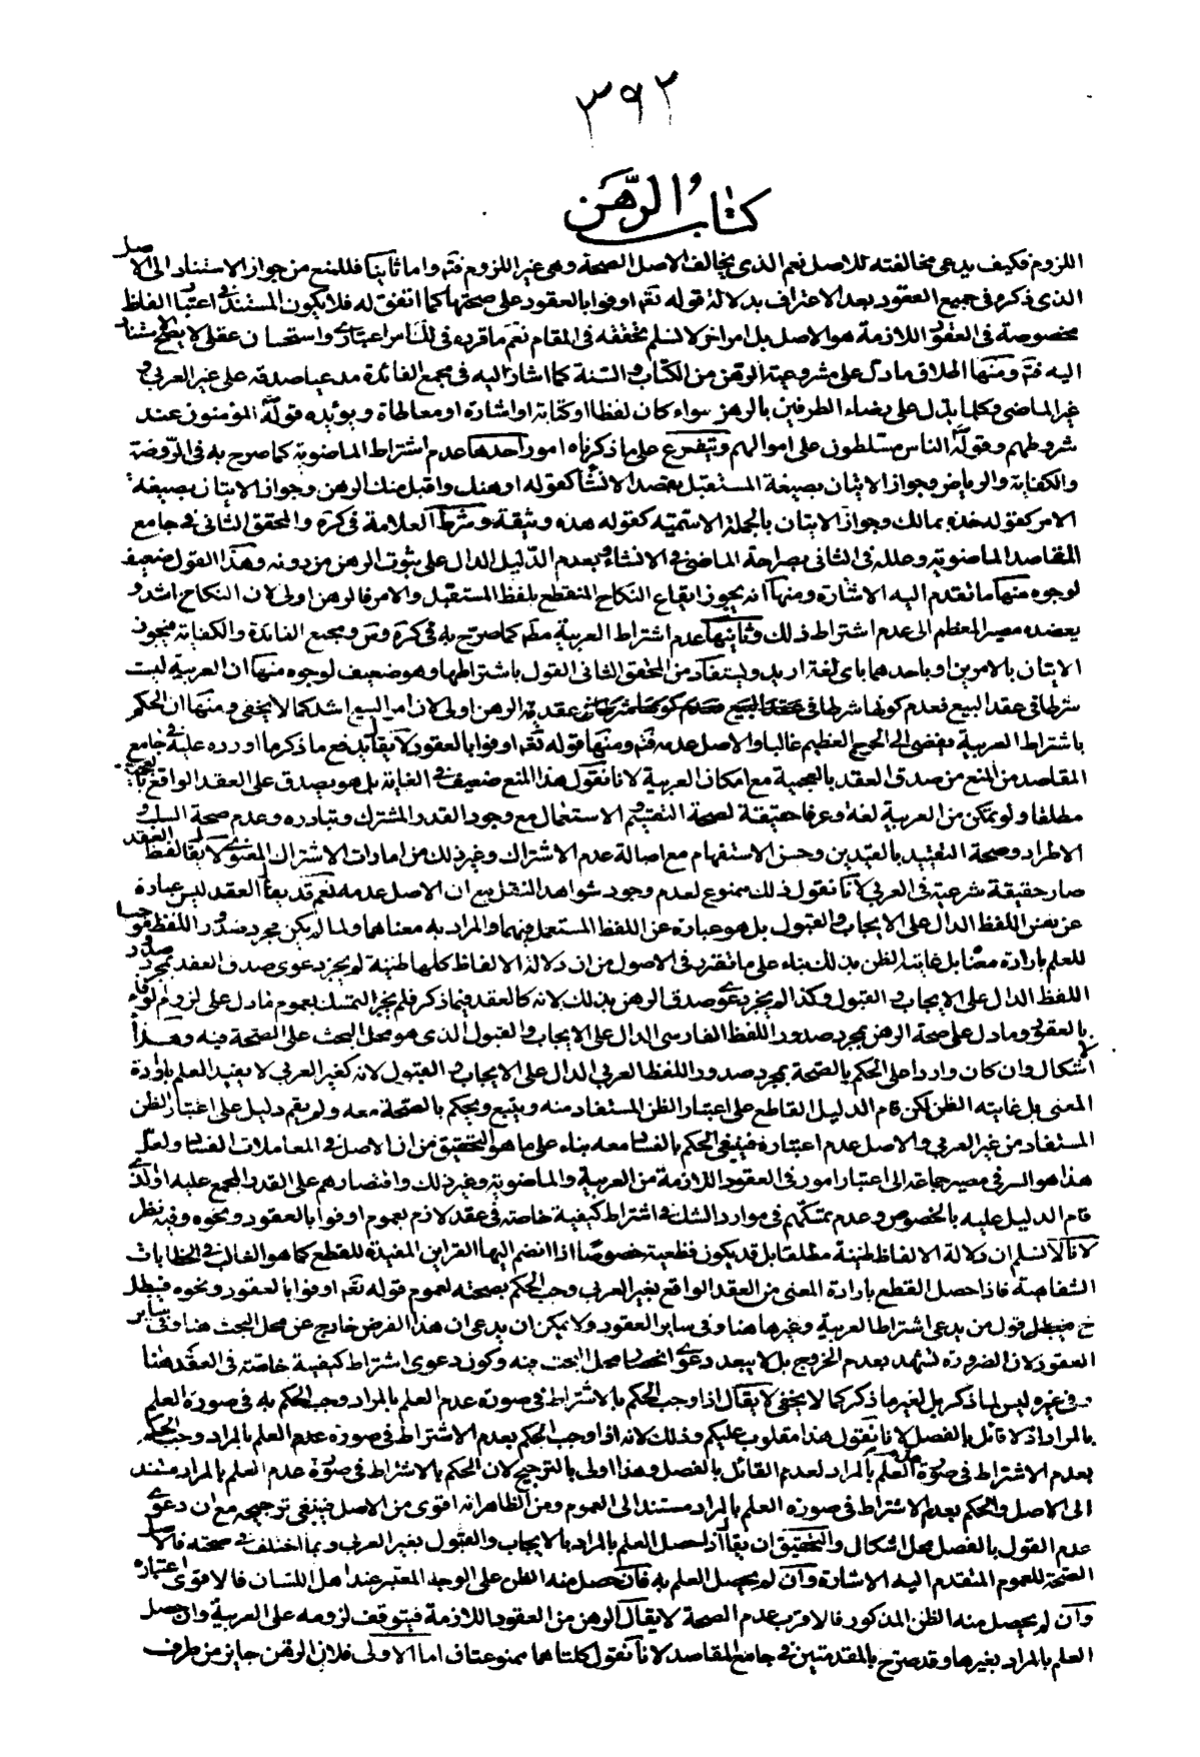 ٣٩٢
كتاب الرهن
اللزوم فكيف يدعى مخالفته للاصل نعم الذى يخالف الاصل الصحة وهى غير اللزوم فتم واما ثانيا فللمنع من جواز الاستناد الى الاصل
الذى ذكره فى جميع العقود بعد الاعتراف بدلالة قوله تعم اوفوا بالعقود على صحتها كما اتفق له فلا يكون المستند فى اعتبار الفاظ
مخصوصة فى العقود اللازمة هو الاصل بل امر اخر لا نسلم تحققه فى المقام نعم ما قرره فى ذلك امر اعتبارى واستحسان عقلى لا يصلح للاستناد
اليه فتم ومنها اطلاق ما دل على مشروعية الرهن من الكتاب والسنة كما اشار اليه فى مجمع الفائدة مدعيا صدقه على غير العربى و
غير الماضى وكلما يدل على رضاء الطرفين بالرهن سواء كان لفظا او كتابة او اشارة او معاطاة ويؤيده قولهم المؤمنون عند
شروطهم وقولهم الناس مسلطون على اموالهم ويتفرع على ما ذكرناه امور احدها عدم اشتراط الماضوية كما صرح به فى الروضة
والكفاية والرياض وجواز الاتيان بصيغة المستقبل بقصد الانشاء كقوله ارهنك واقبل منك الرهن وجواز الاتيان بصيغة
الامر كقوله خذه بمالك وجواز الاتيان بالجملة الاسمية كقوله هذه وثيقة وشرط العلامة فى كره والمحقق الثانى فى جامع
المقاصد الماضوية وعلله فى الثانى بصراحة الماضى فى الانشاء وبعدم الدليل الدال على ثبوت الرهن من دونه وهذا القول ضعيف
لوجوه منها ما تقدم اليه الاشارة ومنها انه يجوز ايقاع النكاح المنقطع بلفظ المستقبل والامر فالرهن اولى لان النكاح اشد و
يعضده مصير المعظم الى عدم اشتراط ذلك وثانيها عدم اشتراط العربية مطم كما صرح به فى كره وض ومجمع الفائدة والكفاية فيجوز
الاتيان بالامرين او باحدهما باى لغة اريد ويستفاد من المحقق الثانى القول باشتراطها وهو ضعيف لوجوه منها ان العربية ليست
شرطا فى عقد البيع فعدم كونها شرطا فى عقدية الرهن اولى لان امر البيع اشد كما لا يخفى ومنها ان الحكم
باشتراط العربية يفضى الى الحرج العظيم غالبا والاصل عدمه فتم ومنها قوله تعم اوفوا بالعقود لا يقال يدفع ما ذكرتم ما اورده عليه فى جامع
المقاصد من المنع من صدق العقد بالعجمية مع امكان العربية لانا نقول هذا المنع ضعيف فى الغاية بل هو يصدق على العقد الواقع بالعجمية
مطلقا ولو تمكن من العربية لغة وعرفا حقيقة لصحة التقسيم والاستعمال مع وجود القدر المشترك وتبادره وعدم صحة السلب و
الاطراد وصحة التقييد بالقيدين وحسن الاستفهام مع اصالة عدم الاشتراك وغير ذلك من امارات الاشتراك المعنوى لا يقال لفظ العقد
صار حقيقة شرعية فى العربى لانا نقول ذلك ممنوع لعدم وجود شواهد النقل مع ان الاصل عدمه نعم قد يقال العقد ليس عبارة
عن نفس اللفظ الدال على الايجاب والقبول بل هو عبارة عن اللفظ المستعمل فيهما والمراد به معناهما ولما لم يكن مجرد صدور اللفظ موجبا
للعلم بارادة معناه بل غايته الظن بذلك بناء على ما تقرر فى الاصول من ان دلالة الالفاظ كلها ظنية لم يجز دعوى صدق العقد بمجرد صدور
اللفظ الدال على الايجاب والقبول وكذا لم يجز دعوى صدق الرهن بذلك لانه كالعقد فيما ذكر فلم يجز التمسك بعموم ما دل على لزوم الوفاء
بالعقود وما دل على صحة الرهن بمجرد صدور اللفظ الفارسى الدال على الايجاب والقبول الذى هو محل البحث على الصحة فيه وهذا
لاشكال وان كان واردا على الحكم بالصحة بمجرد صدور اللفظ العربى الدال على الايجاب والقبول لانه كغير العربى لا يفيد العلم بارادة
المعنى بل غايته الظن لكن قام الدليل القاطع على اعتبار الظن المستفاد منه ويتبع ويحكم بالصحة معه ولم يقم دليل على اعتبار الظن
المستفاد من غير العربى والاصل عدم اعتباره فينبغى الحكم بالفساد معه بناء على ما هو التحقيق من ان الاصل فى المعاملات الفساد ولعل
هذا هو السر فى مصير جماعة الى اعتبار امور فى العقود اللازمة من العربية والماضوية وغير ذلك واقتصارهم على القدر المجمع عليه او الذى
قام الدليل عليه بالخصوص وعدم تمسكهم فى موارد الشك فى اشتراط كيفية خاصة فى عقد لازم بعموم اوفوا بالعقود ونحوه وفيه نظر
لانا لا نسلم ان دلالة الالفاظ ظنية مطلقا بل قد يكون قطعية خصوصا اذا انضم اليها القراين المفيدة للقطع كما هو الغالب فى الخطابات
الشفاهية فاذا حصل القطع بارادة المعنى من العقد الواقع بغير العربى وجب الحكم بصحته لعموم قوله تعم اوفوا بالعقود ونحوه فيبطل
ح قول من يدعى اشتراط العربية وغيرها هنا وفى ساير العقود ولا يمكن ان يدعى ان هذا الفرض خارج عن محل البحث هنا وفى ساير
العقود لان الضرورة تشهد بعدم الخروج بل لا يبعد دعوى انحصار محل البحث فيه وكون دعوى اشتراط كيفية خاصة فى العقد هنا
وفى غيره ليس لما ذكر بل لغير ما ذكر كما لا يخفى لا يقال اذا وجب الحكم بالاشتراط فى صورة عدم العلم بالمراد وجب الحكم به فى صورة العلم
بالمراد اذ لا قائل بالفصل لانا نقول هذا مقلوب عليكم وذلك لانه اذا وجب الحكم بعدم الاشتراط فى صورة عدم العلم بالمراد وجب الحكم
بعدم الاشتراط فى صورة عدم العلم بالمراد لعدم القائل بالفصل وهذا اولى بالترجيح لان الحكم بالاشتراط فى صورة عدم العلم بالمراد مستند
الى الاصل والحكم بعدم الاشتراط فى صورة العلم بالمراد مستند الى العموم ومن الظاهر انه اقوى من الاصل فينبغى ترجيحه مع ان دعوى
عدم القول بالفصل محل اشكال والتحقيق ان يقال اذا حصل العلم بالمراد بالايجاب والقبول بغير العربى وبما اختلف فى صحته فالاصل
الصحة للعموم المتقدم اليه الاشارة وان لم يحصل العلم به فان حصل منه الظن على الوجه المعتبر عند اهل اللسان فالاقوى اعتباره
وان لم يحصل منه الظن المذكور فالاقرب عدم الصحة لا يقال الرهن من العقود اللازمة فيتوقف لزومه على العربية وان حصل
العلم بالمراد بغيرها وقد صرح بالمقدمتين فى جامع المقاصد لانا نقول كلتاهما ممنوعتان اما الاولى فلان الرهن جايز من طرف